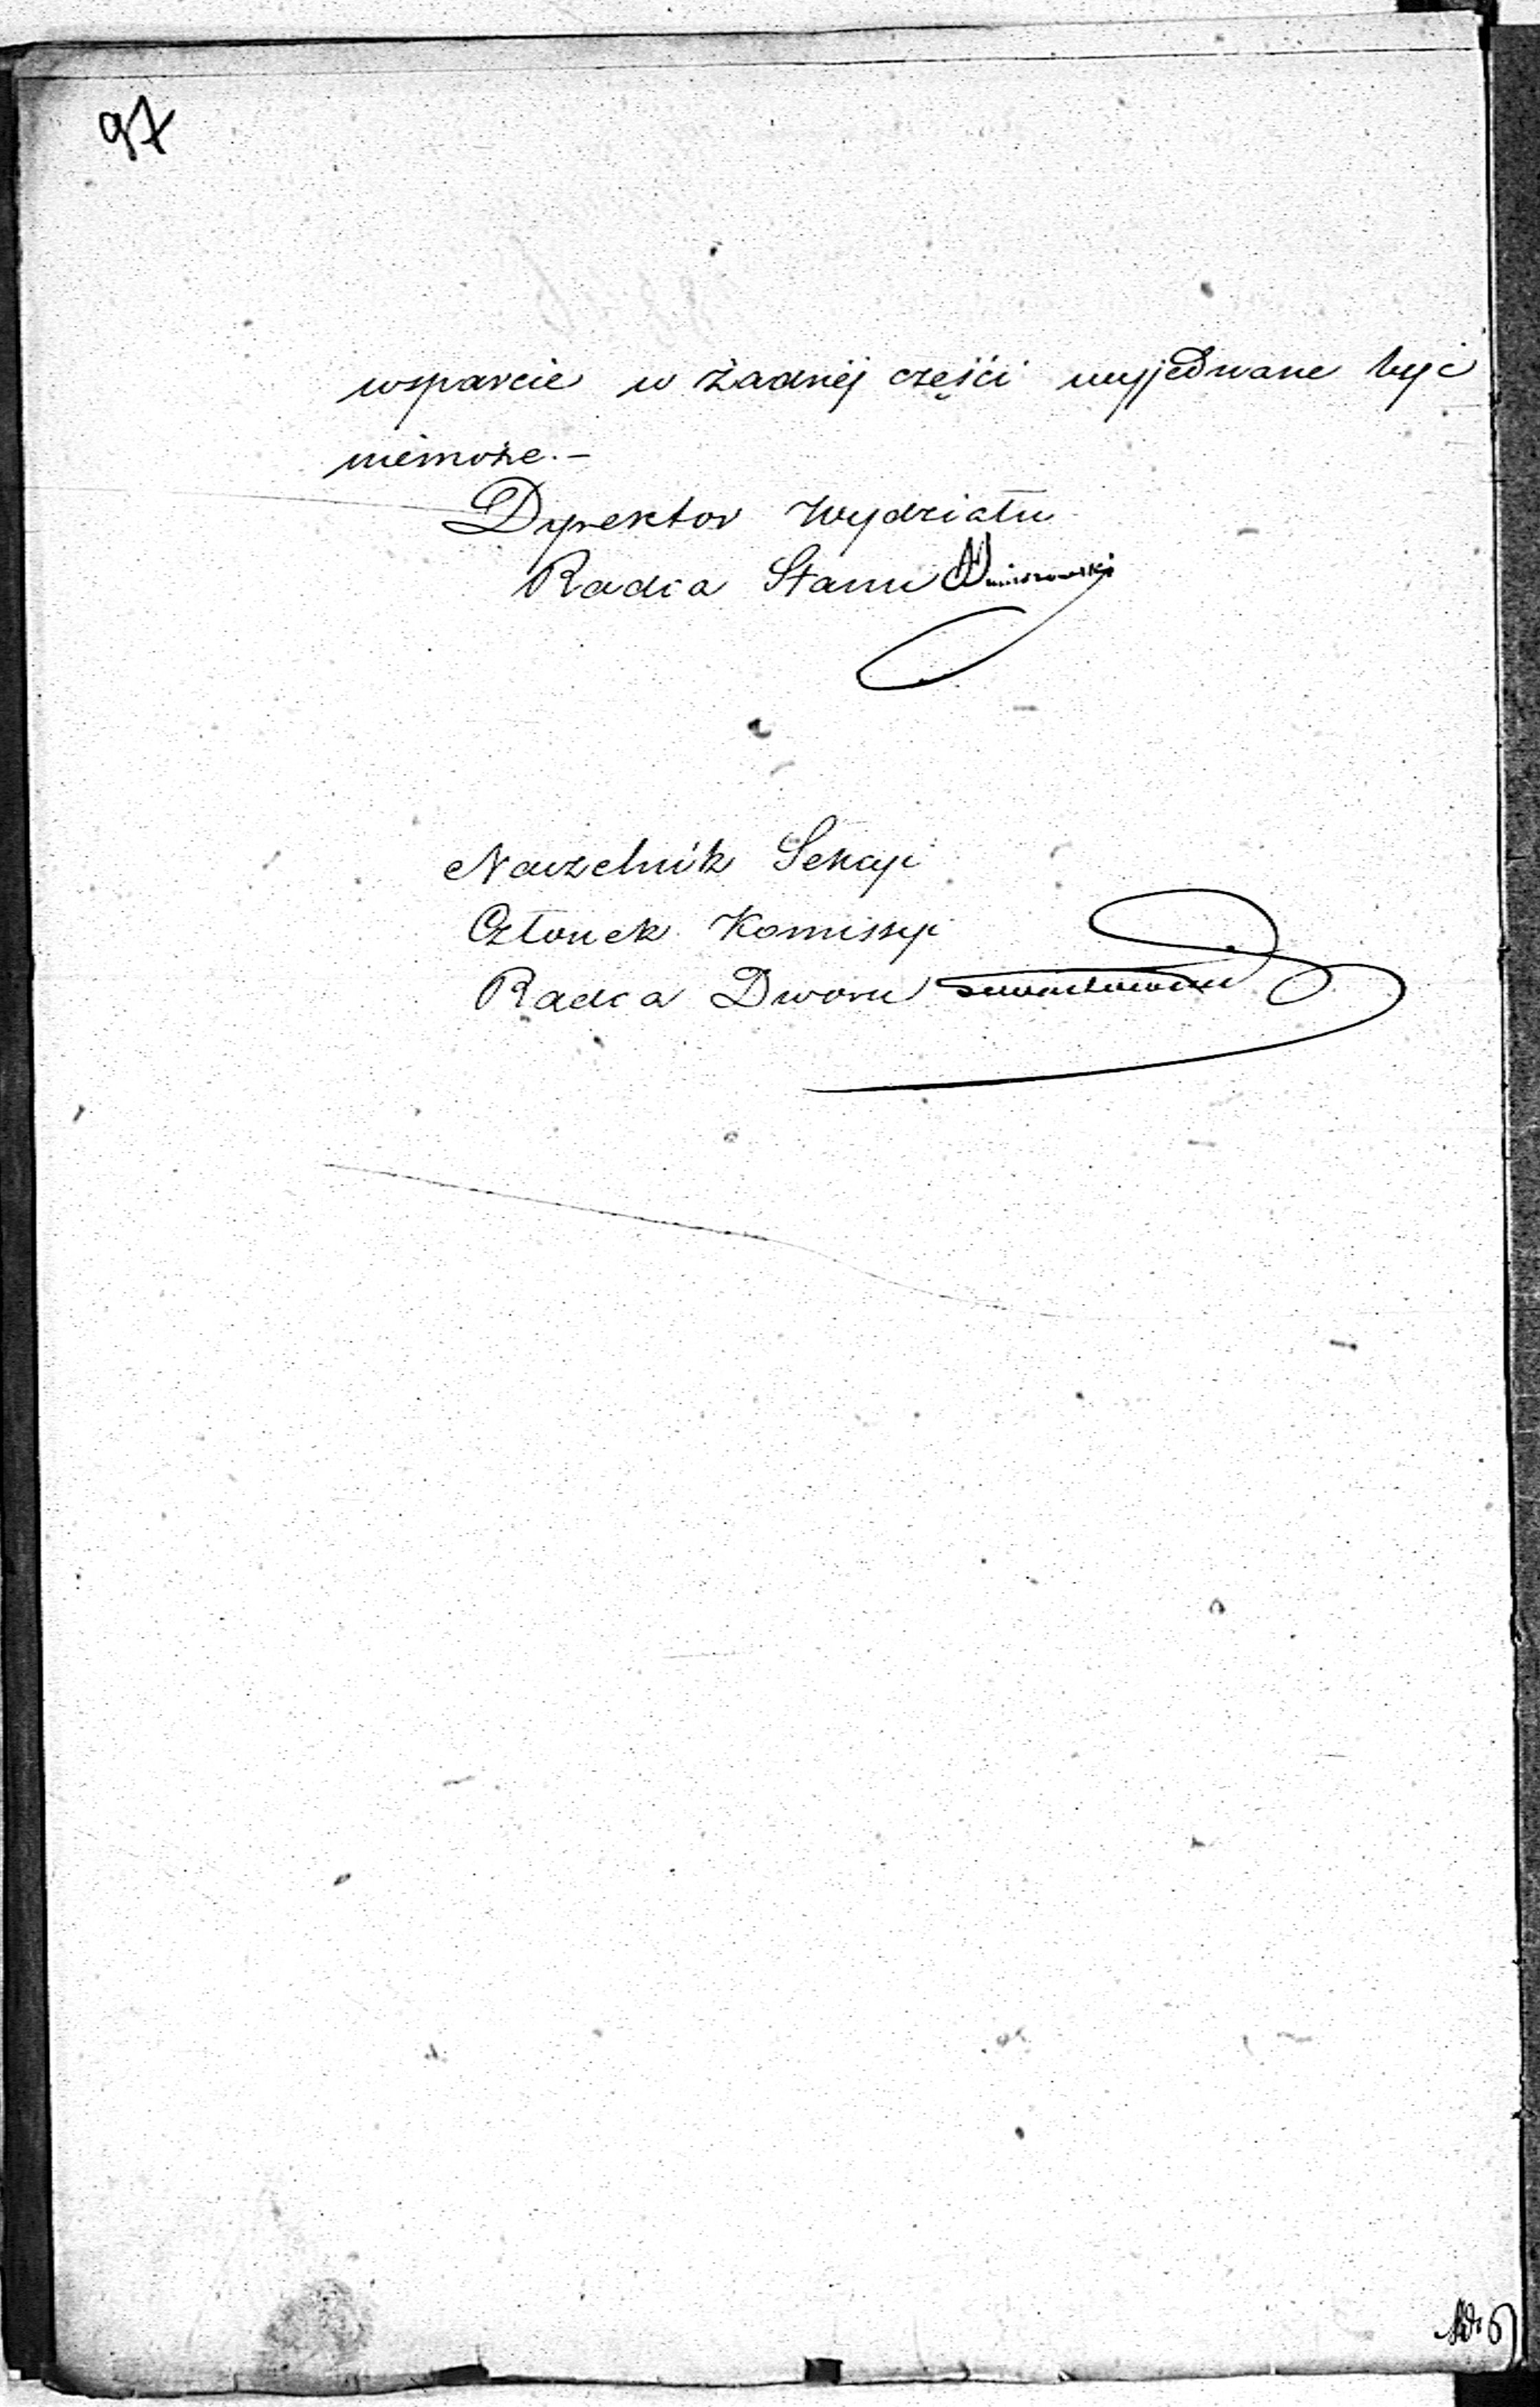 97
wsparcie w żadnéj części wyjednane być
niemoże.—
Dyrektor Wydziału
Radca Stanu
Naczelnik Sekcyi
Członek Komissyi
Radca Dworu